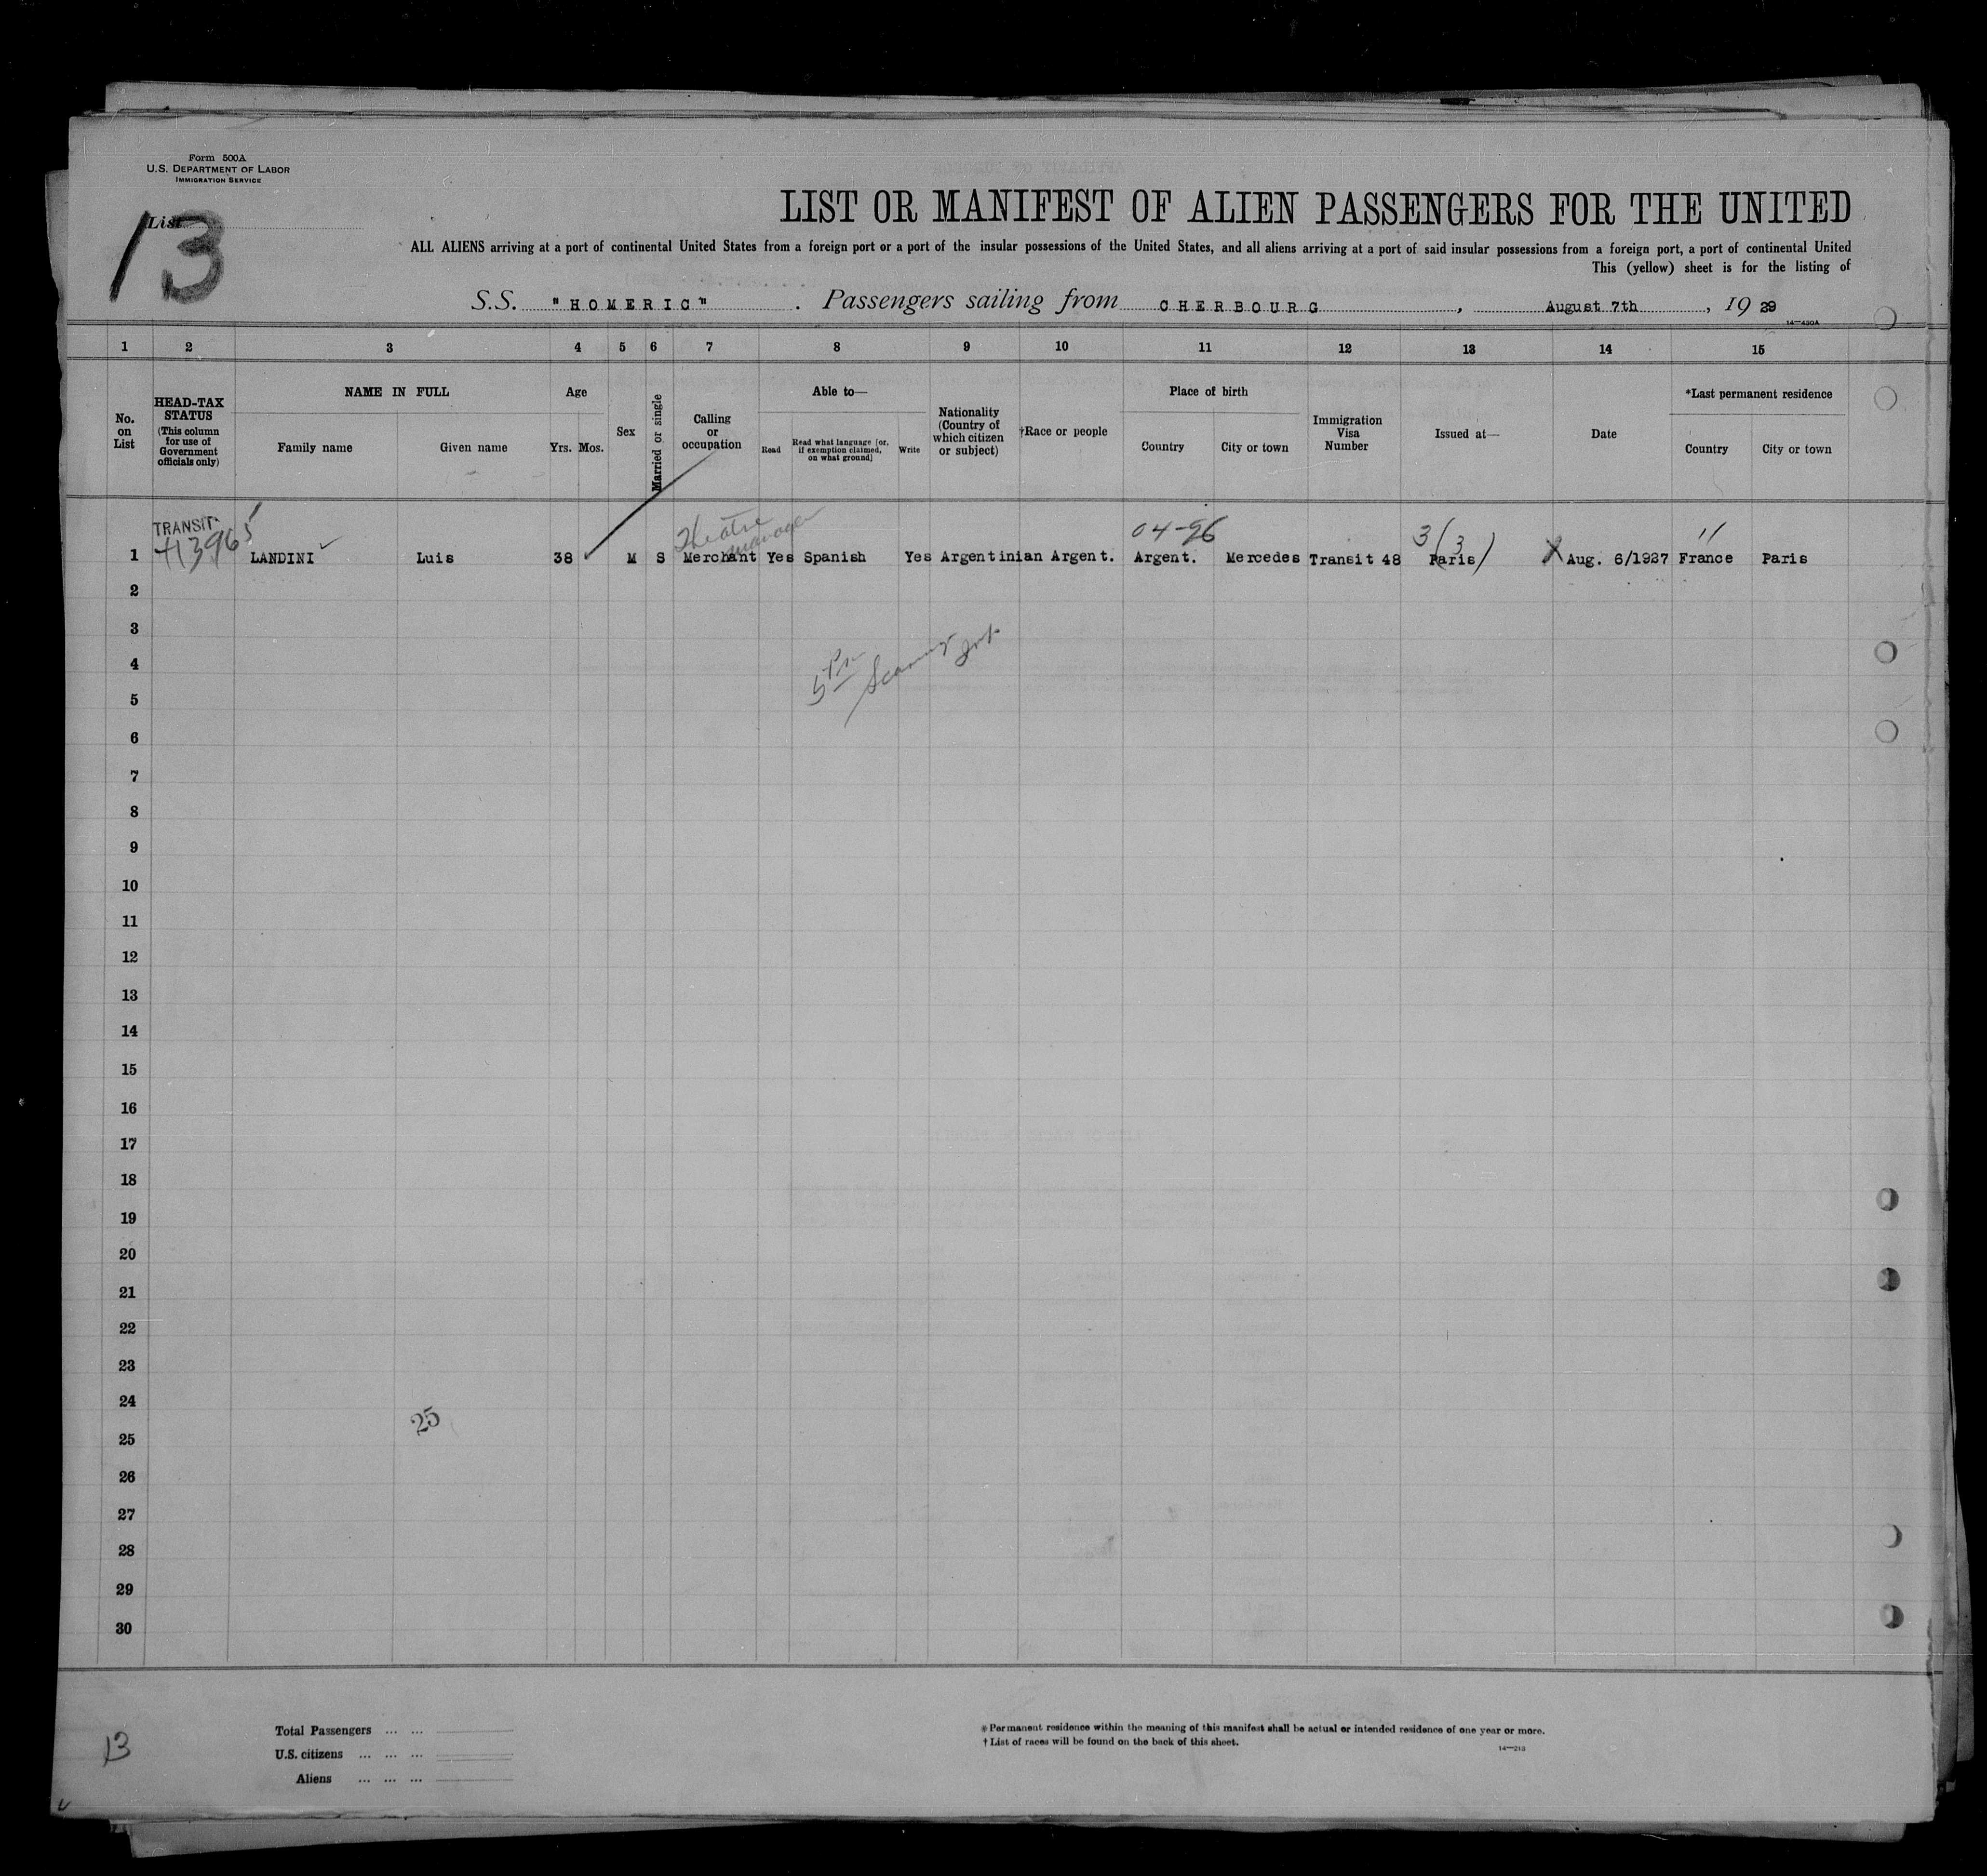 Form 500A
U.S. DEPARTMENT OF LABOR
IMMIGRATION SERVICE
List
13
LIST OR MANIFEST OF ALIEN PASSENGERS FOR THE UNITED
ALL ALIENS arriving at a port of continental United States from a foreign port or a port of the insular possessions of the United States, and all aliens arriving at a port of said insular possessions from a foreign port, a port of continental United
This (yellow) sheet is for the listing of
S.S. "HOMERIC". Passengers sailing from CHERBOURG, August 7th, 19 29
14—430A
1 2 3 4 5 6 7 8 9 10 11 12 13 14 15
No. on List
HEAD-TAX STATUS
(This column for use of Government officials only)
NAME IN FULL
Family name Given name
Age
Yrs. Mos.
Sex
Married or single
Calling or occupation
Able to—
Read
Read what language [or, if exemption claimed, on what ground]
Write
Nationality (Country of which citizen or subject)
†Race or people
Place of birth
Country City or town
Immigration Visa Number
Issued at—
Date
*Last permanent residence
Country City or town
TRANSIT
413965
Theatre manager
04-96
3(3)
11
1 LANDINI Luis 38 M S Merchant Yes Spanish Yes Argentinian Argent. Argent. Mercedes Transit 48 Paris X Aug. 6/1927 France Paris
2
3
4
5
6
7
8
9
10
11
12
13
14
15
16
17
18
19
20
21
22
23
24
25
25
26
27
28
29
30
Total Passengers ... ...
U.S. citizens ... ... ...
Aliens ... ... ...
13
*Permanent residence within the meaning of this manifest shall be actual or intended residence of one year or more.
†List of races will be found on the back of this sheet.
14—213